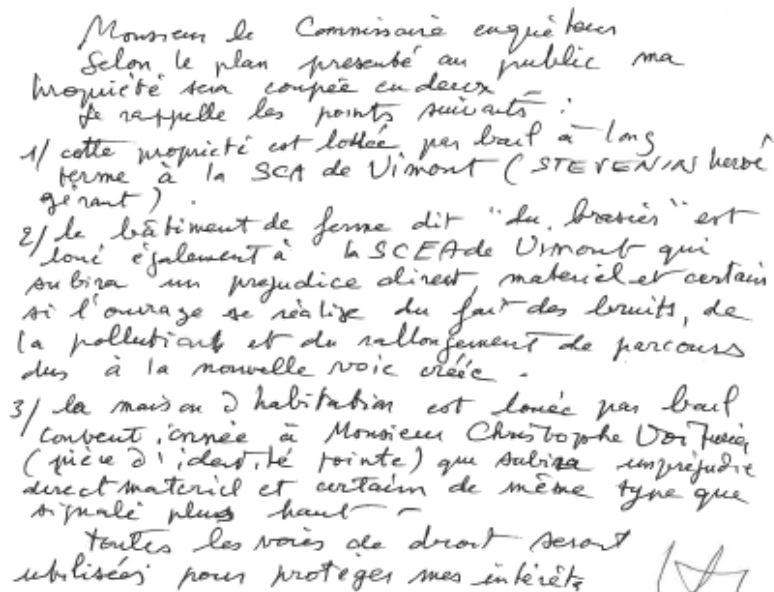 Monsieur le Commissaire enquêteur
Selon le plan presenté au public ma
propriété sera coupée en deux -
Je rappelle les points suivants :
1/ cette propriété est louée par bail à long
terme à la SCA de Vimont ( STEVENIN hervé
gérant ) .
2/ le bâtiment de ferme dit "du brasier" est
loué également à la SCEA de Vimont qui
subira un prejudice direct materiel et certain
si l'ouvrage se réalise du fait des bruits, de
la pollution et du rallongement de parcours
dus à la nouvelle voie créée .
3/ la maison d'habitation est louée par bail
à Monsieur Christophe
(pièce d'identité jointe) que subira un préjudice
direct materiel et certain de même type que
signalé plus haut -
toutes les voies de droit seront
utilisées pour protéger mes intérêts